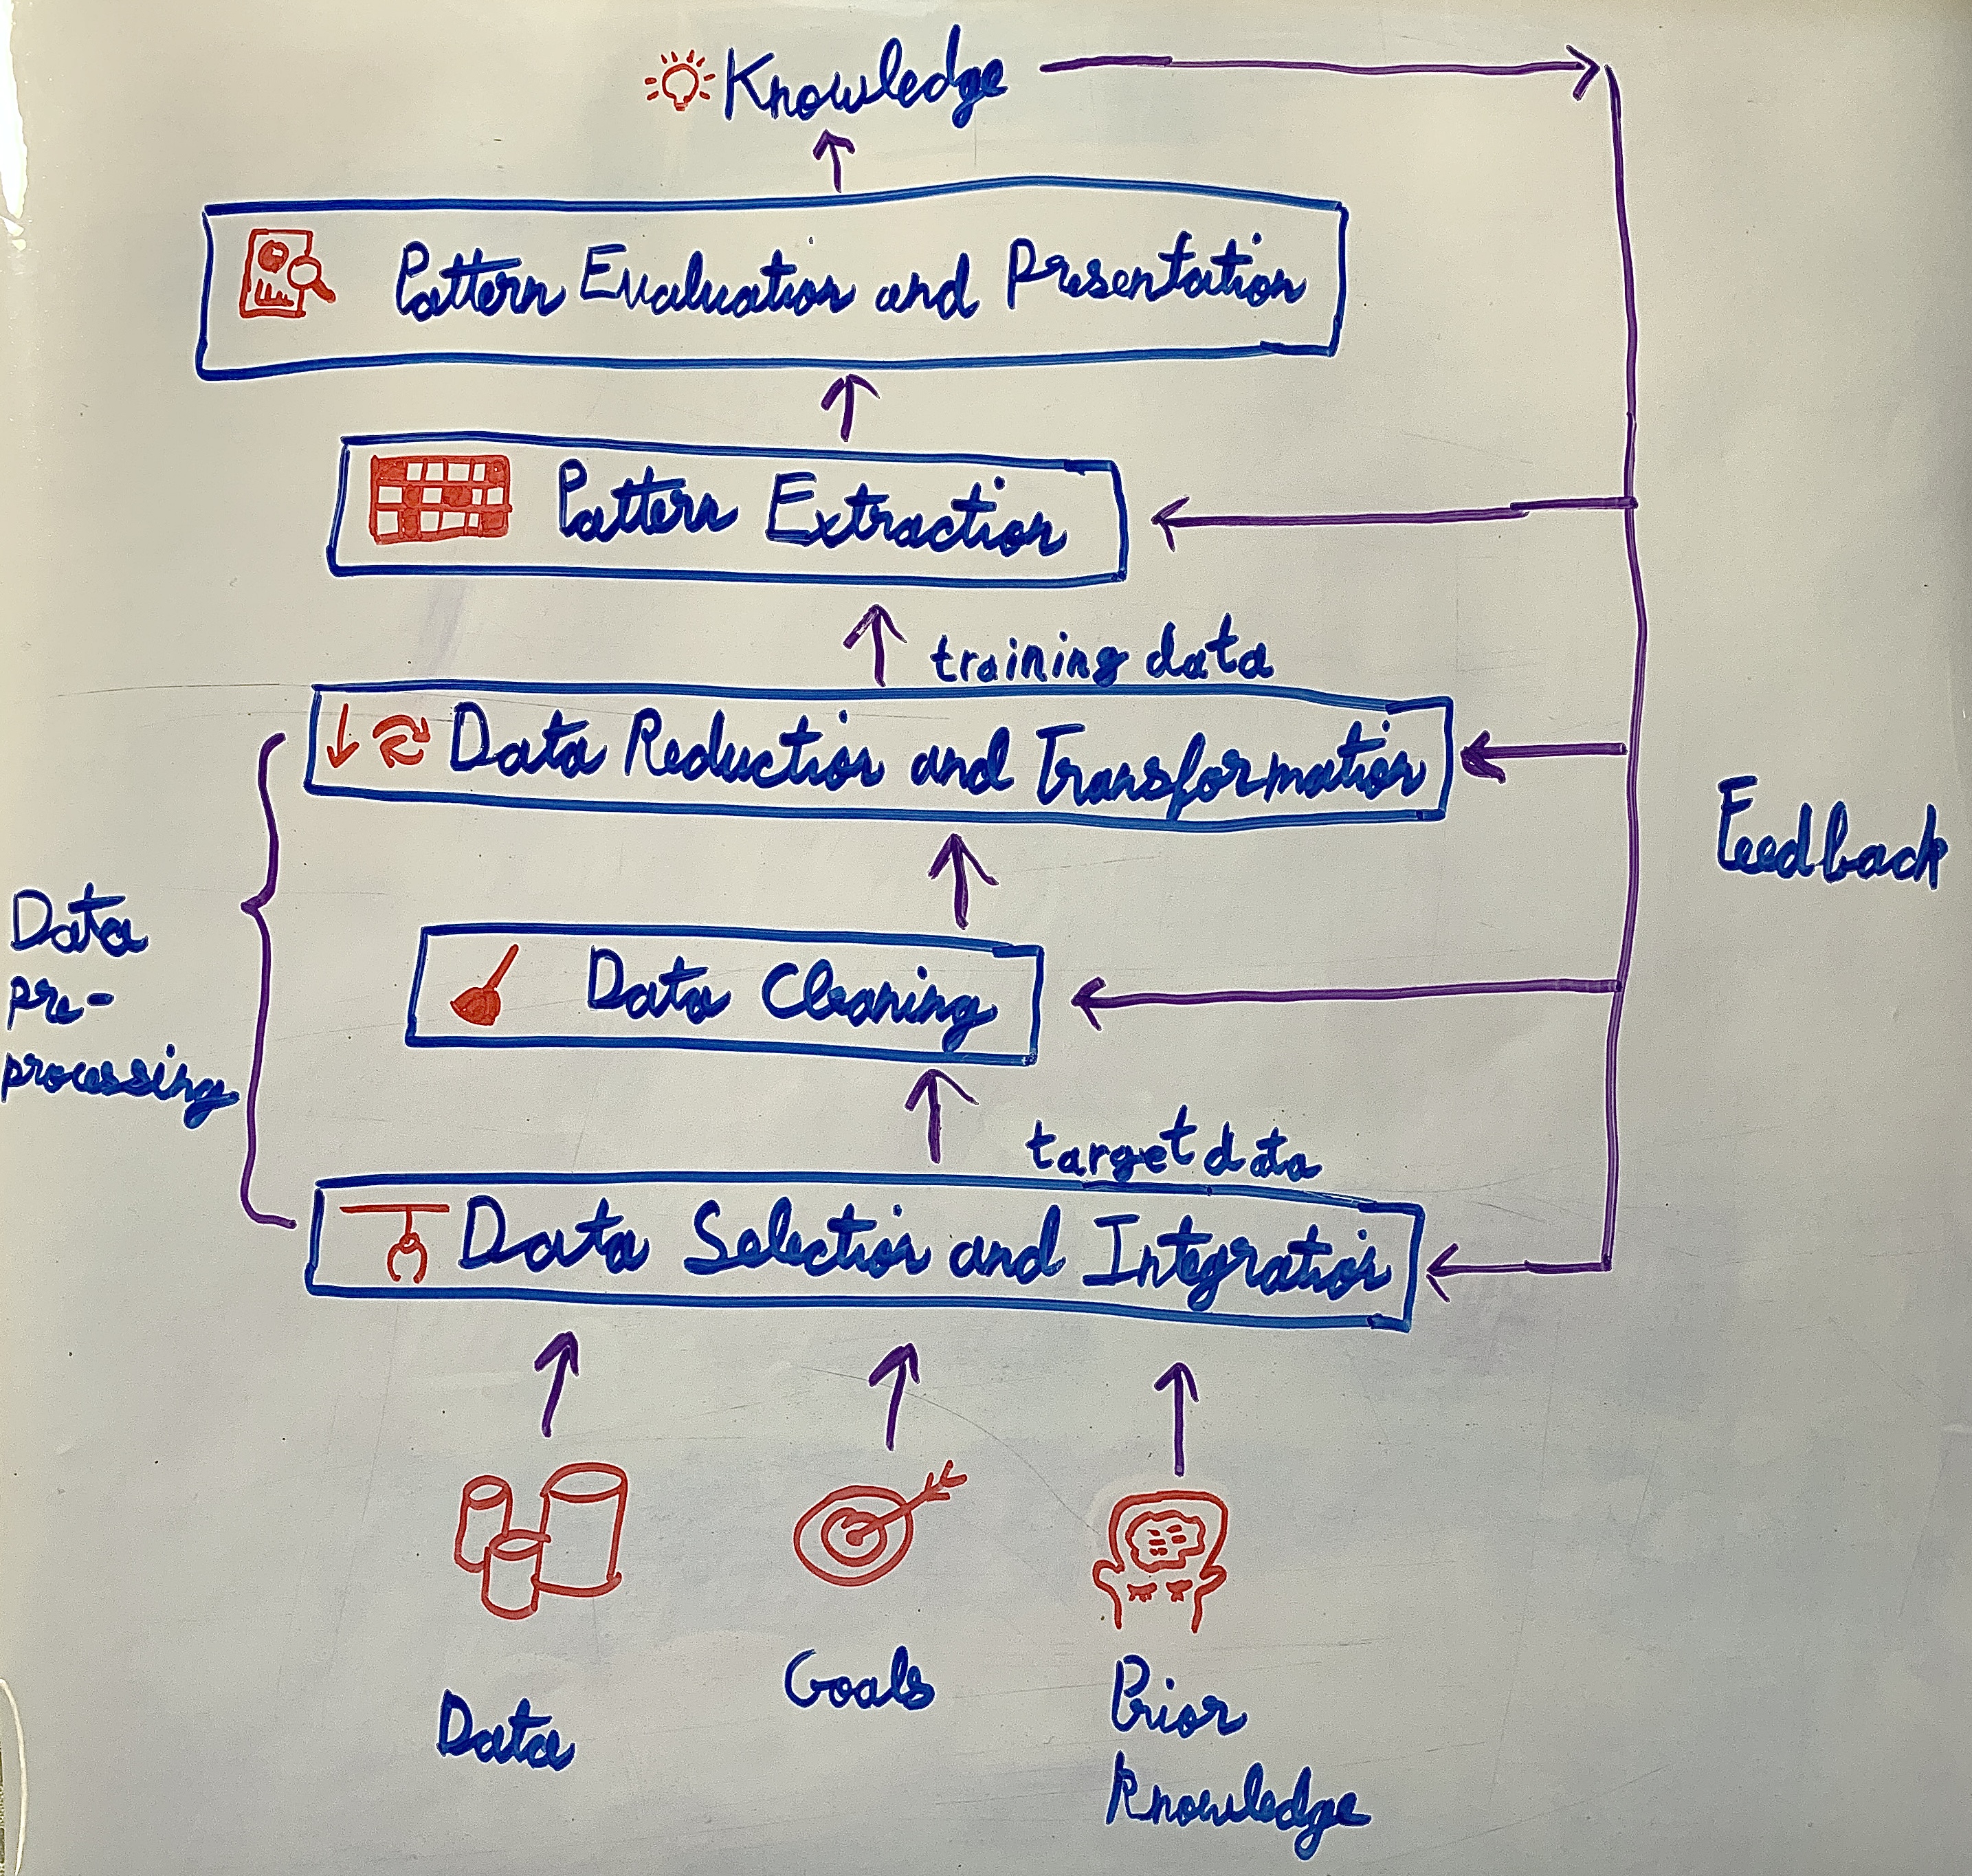 Knowledge
Pattern Evaluation and Presentation
Pattern Extraction
training data
Data Reduction and Transformation
Feedback
Data
pre-
processing
Data Cleaning
target data
Data Selection and Integration
Data
Goals
Prior
Knowledge